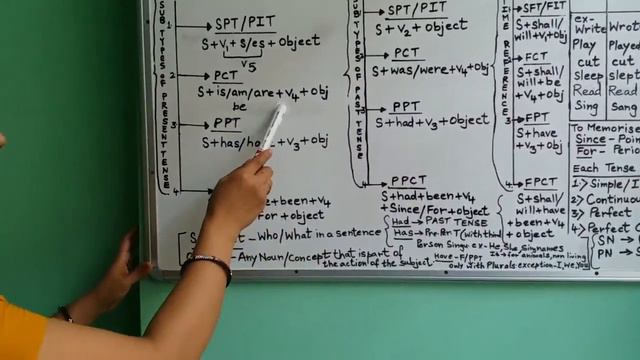 SUB TYPES OF PRESENT TENSE
1 SPT/PIT
S+V1+S/es+Object
V5
2 PCT
S+is/am/are+V4+Obj
be
3 PPT
S+has/ +V3+obj
4
+been+V4
For+object
SUB TYPES OF PAST TENSE
SPT/PIT
S+V2+Object
PCT
S+was/were+V4+Obj
PPT
S+had+V3+Object
4 PPCT
S+had+been+V4
+Since/For+object
1 SFT/FIT
S+shall/
will+V1+obj
2 FCT
S+shall/
will+be
+V4+Obj
3 FPT
S+have
+V3+Obj
4 FPCT
S+shall/
will+have
+been+V4
+object
ex-
Write Wrote
Play Played
cut cut
Sleep slept
Read Read
Sing Sang
To Memorise
Since-
For-
Each Tense
1) Simple/
2) Continuous
3) Perfect
4) Perfect
SN →
PN →
-Who/What in a sentence
-Any Noun/Concept that is part of
the action of the subject
Had → PAST TENSE
Has →
Have-F/PPT
only with Plurals exception-I, we, You